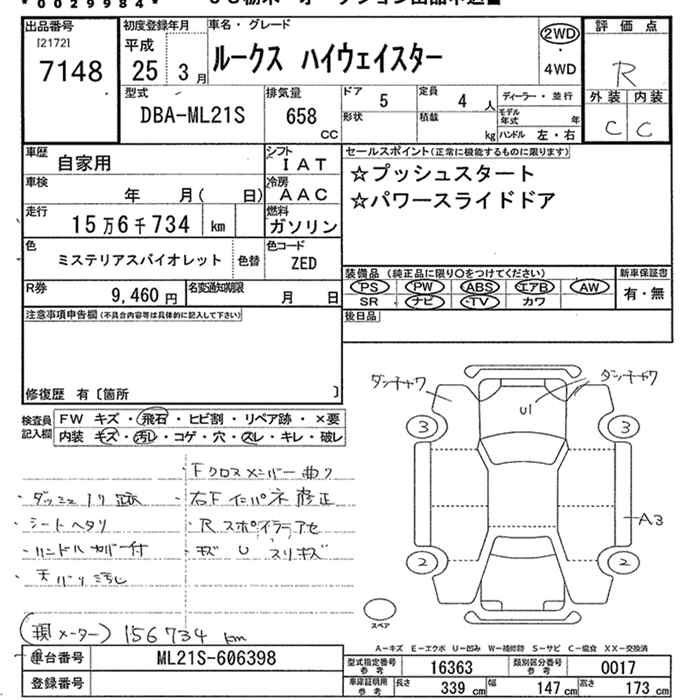 出品番号
[2172]
7148
初度登録年月
平成
25 3月
車名・グレード
ルークス ハイウェイスター
2WD
・
4WD
評価点
R
外装 内装
C C
型式
DBA-ML21S
排気量
658 cc
ドア 5
定員 4 人
形状
積載 kg
ディーラー・並行
モデル年式 年
ハンドル 左・右
車歴
自家用
シフト
IAT
車検
年 月( 日)
冷房
AAC
走行
15万6千734 km
燃料
ガソリン
色
ミステリアスバイオレット
色替
色コード
ZED
R券
9,460円
名変通知期限
月 日
セールスポイント(正常に機能するものに限ります)
☆プッシュスタート
☆パワースライドドア
装備品(純正品に限り○をつけてください)
PS PW ABS エアB AW
SR ナビ TV カワ
新車保証書
有・無
後日品
注意事項申告欄(不具合内容等は具体的に記入して下さい)
修復歴 有〔箇所 〕
検査員記入欄
FW キズ・飛石・ヒビ割・リペア跡・×要
内装 キズ・汚レ・コゲ・穴・スレ・キレ・破レ
・Fクロスメンバー曲り
・右Fインパネ修正
・シートヘタリ
・ハンドルカバー付
・天バリ汚レ
・キズ U スリキズ
(現メーター) 156734 km
U1
3
3
2
2
A3
スペア
A-キズ E-エクボ U-凹み W-補修跡 S-サビ C-腐食 XX-交換済
車台番号
ML21S-606398
登録番号
型式指定番号 参考
16363
類別区分番号 参考
0017
車庫証明用 参考
長さ 339cm 幅 147cm 高さ 173cm